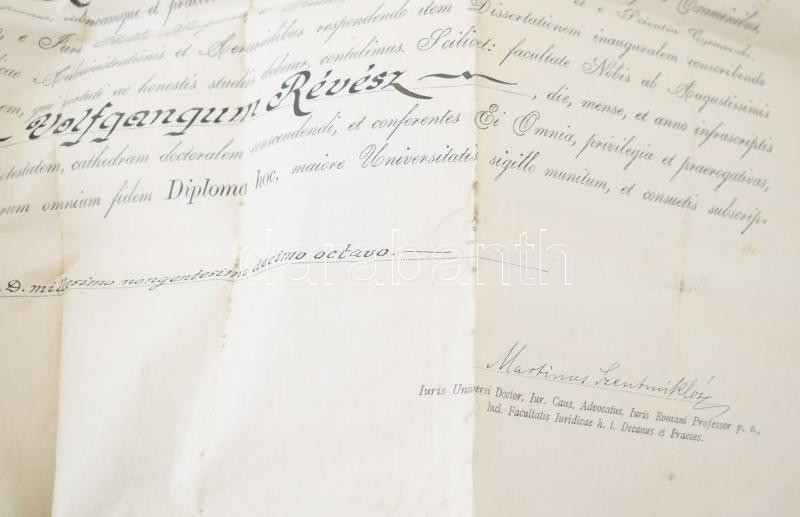 Omnibus,
idemque et e Scientia
e Iuris
Administrationis et respondendo item Dissertationem inauguralem conscribendo
qui virtuti ac honestis studiis debetur, contulimus. Scilicet: facultate Nobis ab Augustissimis
Volfgangum Révész
, die, mense, et anno infrascriptis
cathedram doctoralem conscendendi, et conferentes Ei Omnia, privilegia et praerogativas,
rum omnium fidem Diploma hoc, maiore Universitatis sigillo munitum, et consuetis subscrip-
D. millesimo nongentesimo decimo octavo.
darabanth
Martinus Szentmiklósy
Iuris Universi Doctor, Iur. Caus. Advocatus, Iuris Romani Professor p. o.,
Incl. Facultatis Iuridicae h. t. Decanus et Praeses.